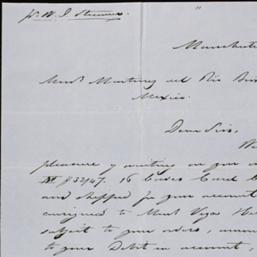 pr W. J.
Manchester
Messrs Martinez del Rio
Mexico.
Dear Sirs,
pleasure of writing on your
33/47. 16 Cases
and shipped for your account
consigned to
subject to your orders,
to your Debit in account,